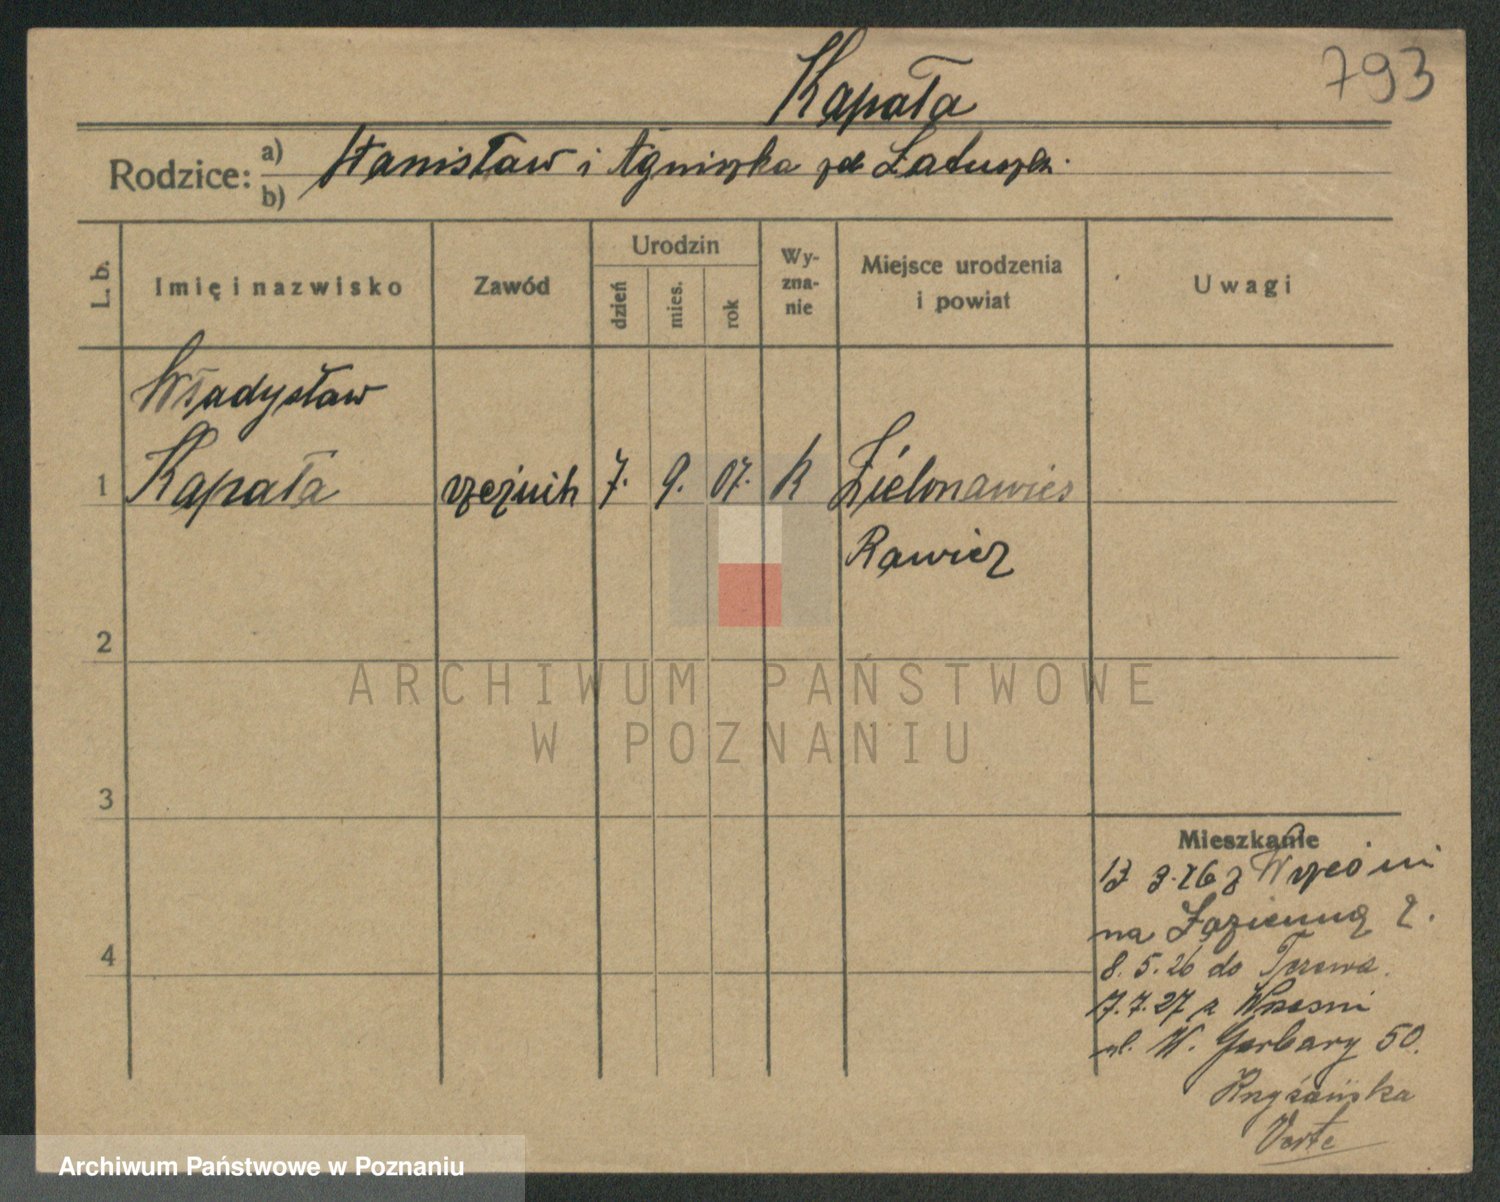 793
Kapała
Rodzice: a) Stanisław i Agniszka zd Łatuszk.
b)
L. b.
Imię i nazwisko
Zawód
Urodzin
dzień
mies.
rok
Wy-
zna-
nie
Miejsce urodzenia
i powiat
Uwagi
Władysław
1 Kapała rzeźnik 7. 9. 07. k Zielonawieś
Rawicz
2
ARCHIWUM PAŃSTWOWE
W POZNANIU
3
Mieszkanie
13 3.26 z Wrześni
na Łazienną 2.
4
8.5.26 do
7.7.27 z Wrześni
ul. W. Garbary 50.
Krzyżańska
Archiwum Państwowe w Poznaniu